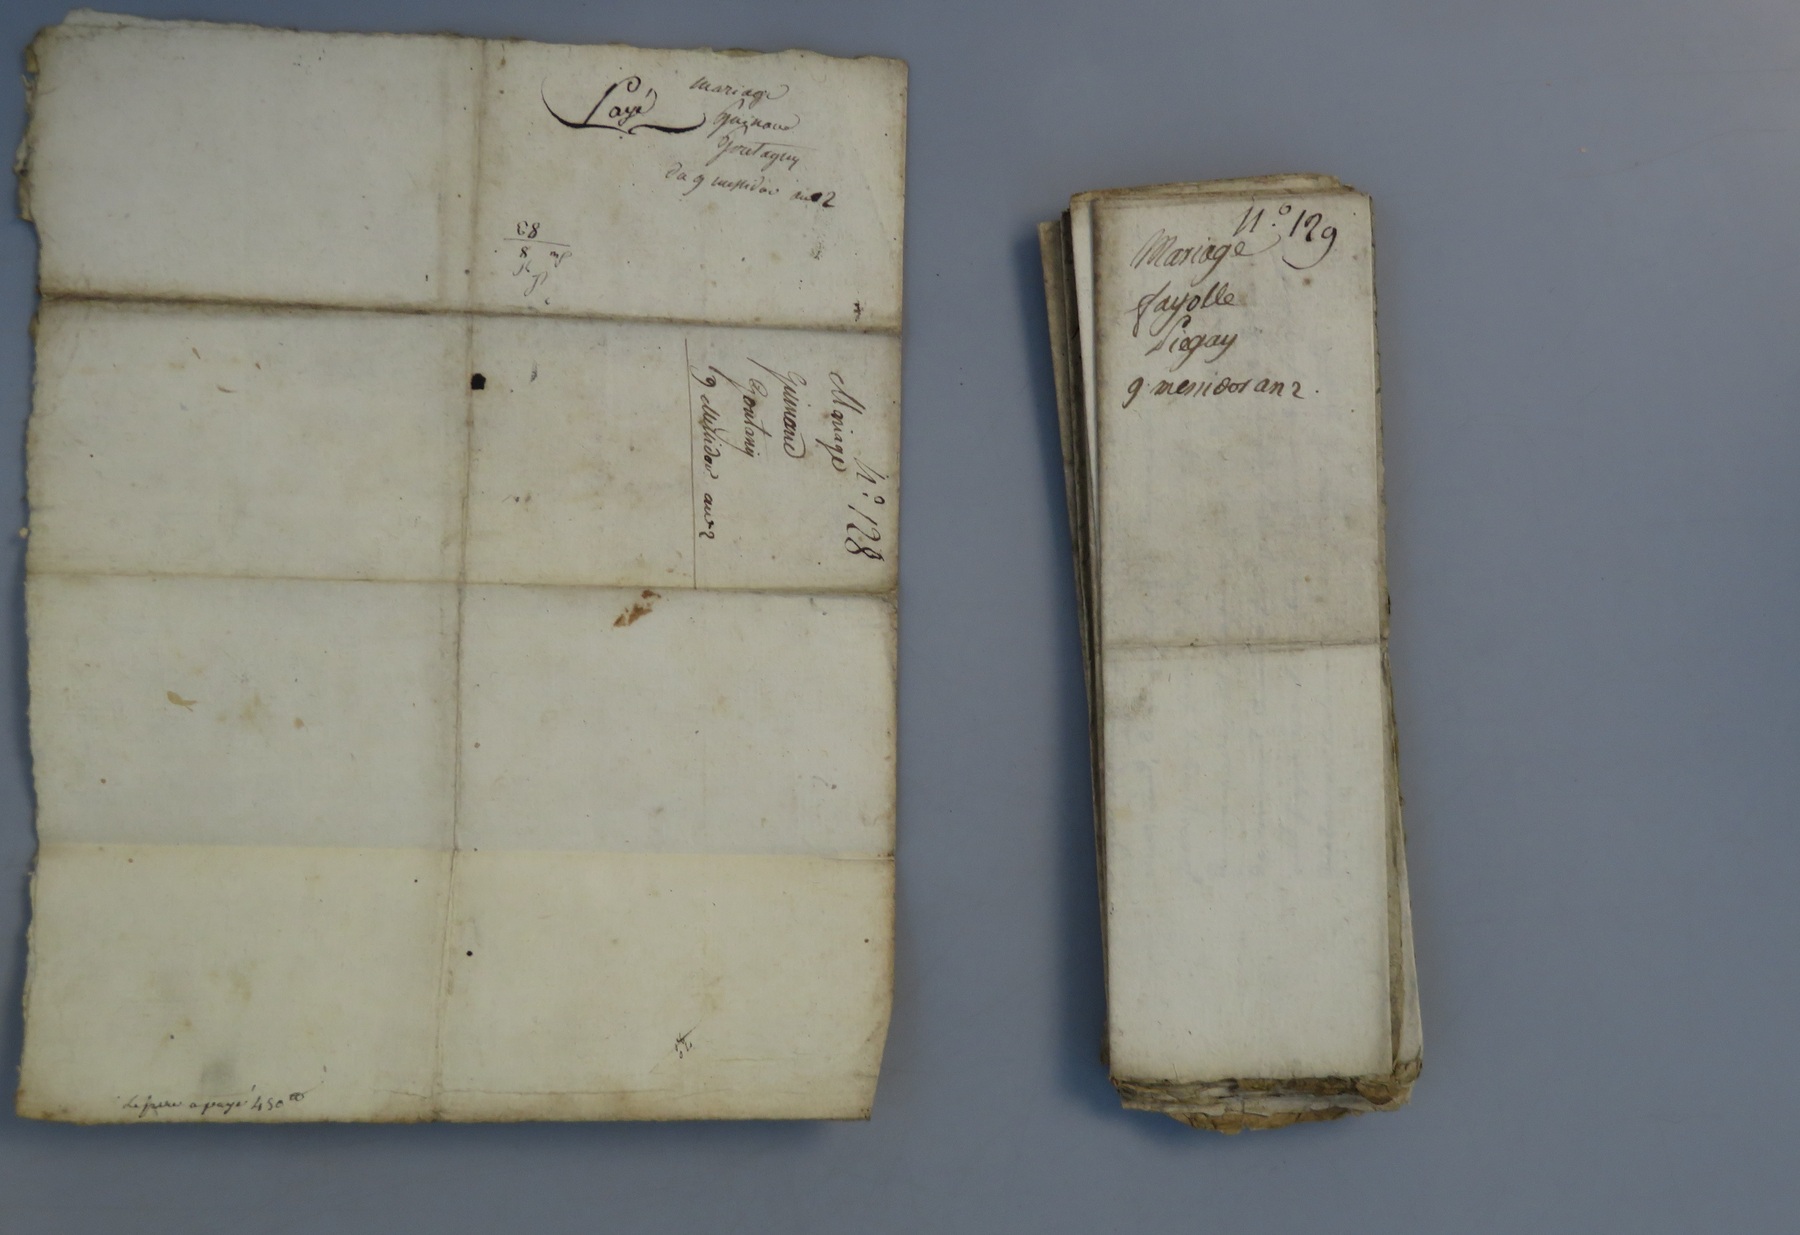 Payé
mariage
Guinaud
Goutagny
du 9 messidor an 2
N.o 128
Mariage
Guinaud
Goutagny
9 Messidor an 2
Le père a payé 450
N.o 129
Mariage
fayolle
Piegay
9 messidor an 2.